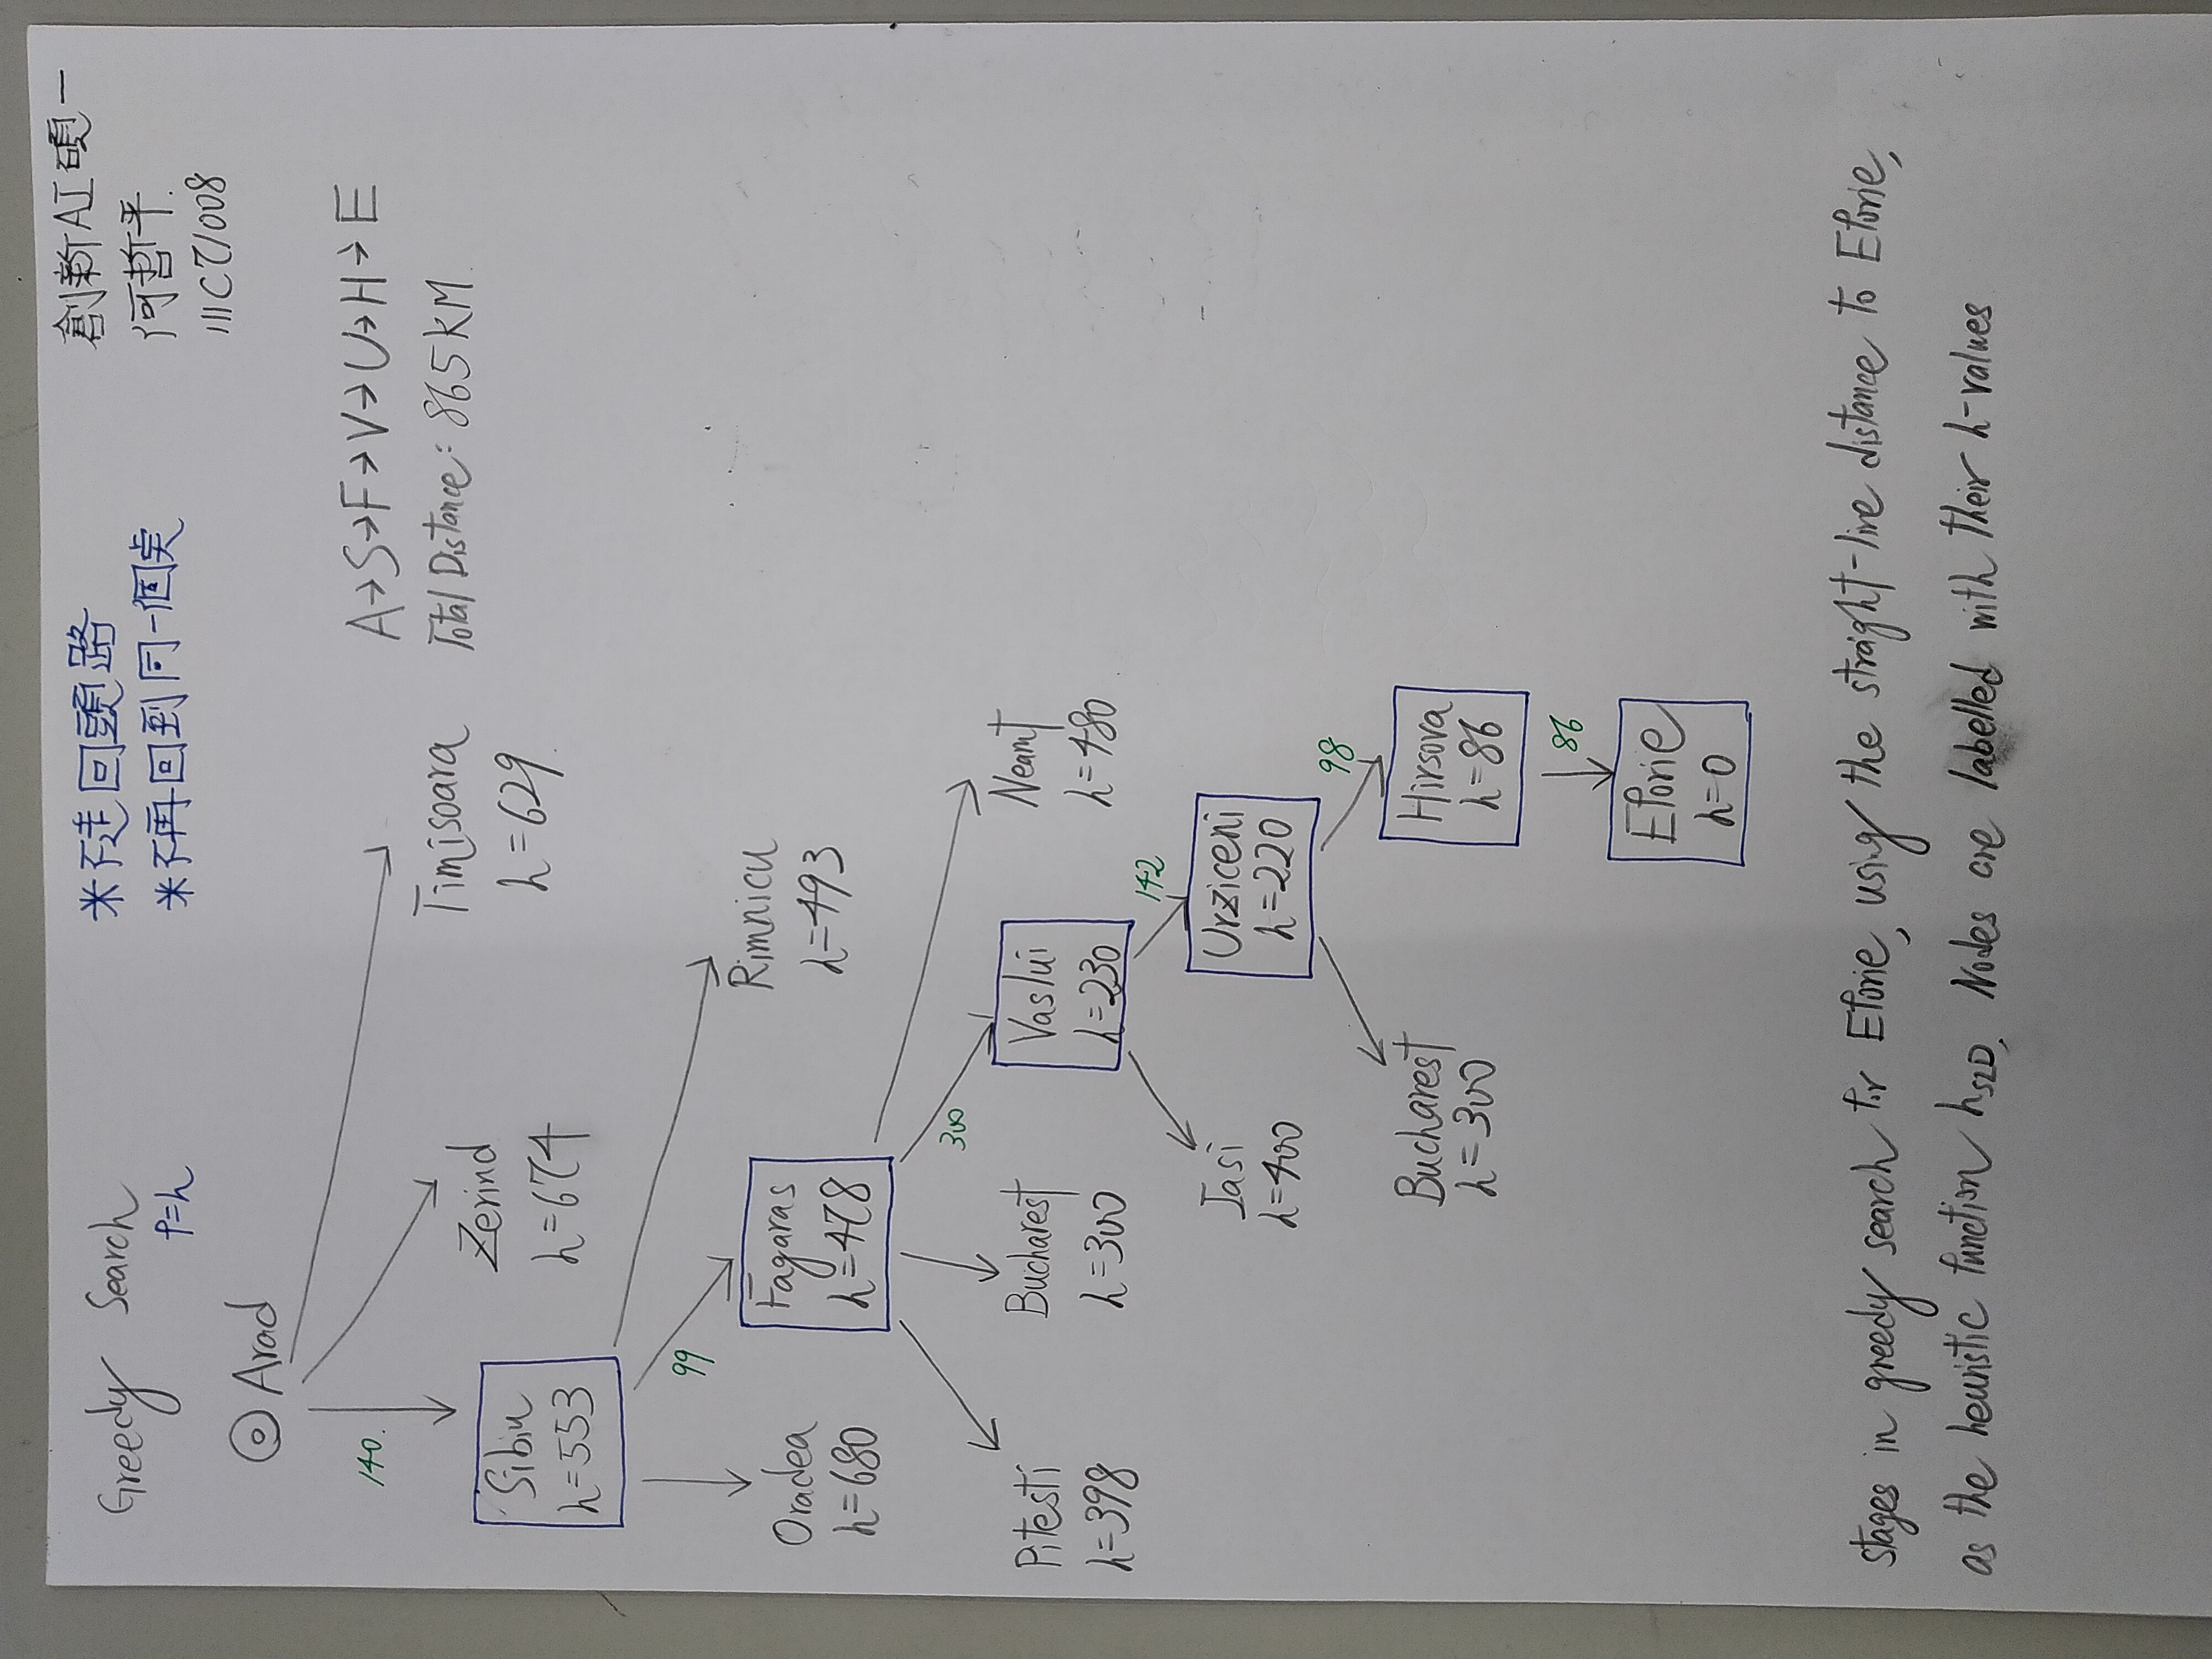 Greedy Search
f=h
*不走回頭路
*不再回到同一個点
創新AI碩一
何哲平
111C71008
Arad
A→S→F→V→U→H→E
Total Distance: 865KM
140
Sibiu
h=553
Zerind
h=674
Timisoara
h=629
99
Oradea
h=680
Fagaras
h=478
Rimnicu
h=493
300
Pitesti
h=398
Bucharest
h=300
Vaslui
h=230
Neamt
h=480
142
Iasi
h=400
Urziceni
h=220
98
Bucharest
h=300
Hirsova
h=86
86
Eforie
h=0
stages in greedy search for Eforie, using the straight-line distance to Eforie,
as the heuristic function hSLD, Nodes are labelled with their h-values